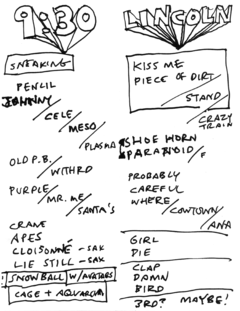 9:30
SNEAKING
PENCIL
JOHNNY/
CELE/
MESO/
PLASMA
OLD P.B./
WITHRD
PURPLE/
MR. ME/
SANTA'S
CRANE
APES
CLOISONNE - SAX
LIE STILL - SAX
SNOWBALL W/AVATARS
CAGE + AQUARIUM
LINCOLN
KISS ME
PIECE OF DIRT
STAND/
CRAZY
TRAIN
SHOE HORN
PARANOID/F
PROBABLY
CAREFUL
WHERE/
COWTOWN/
ANA
GIRL
DIE
CLAP
DAMN
BIRD
3RD? MAYBE!